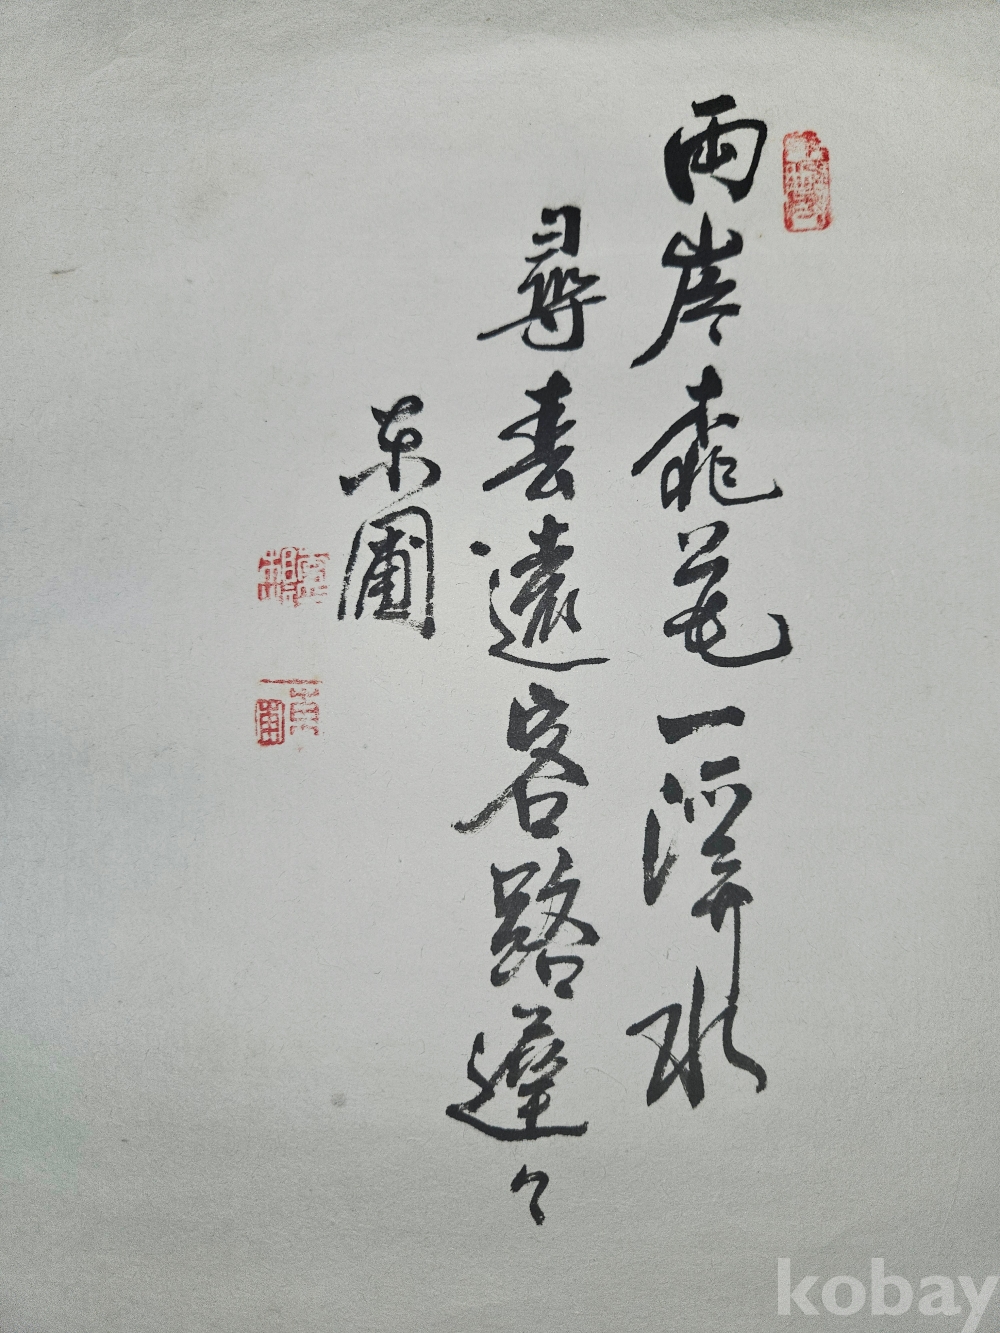 兩岸桃花一溪水
尋春遠客路遲々
東圃
kobay